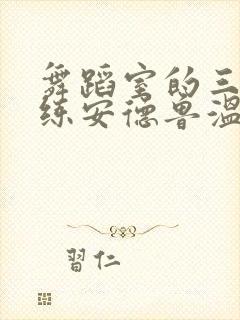 舞蹈室的三
练安德鲁温
習仁